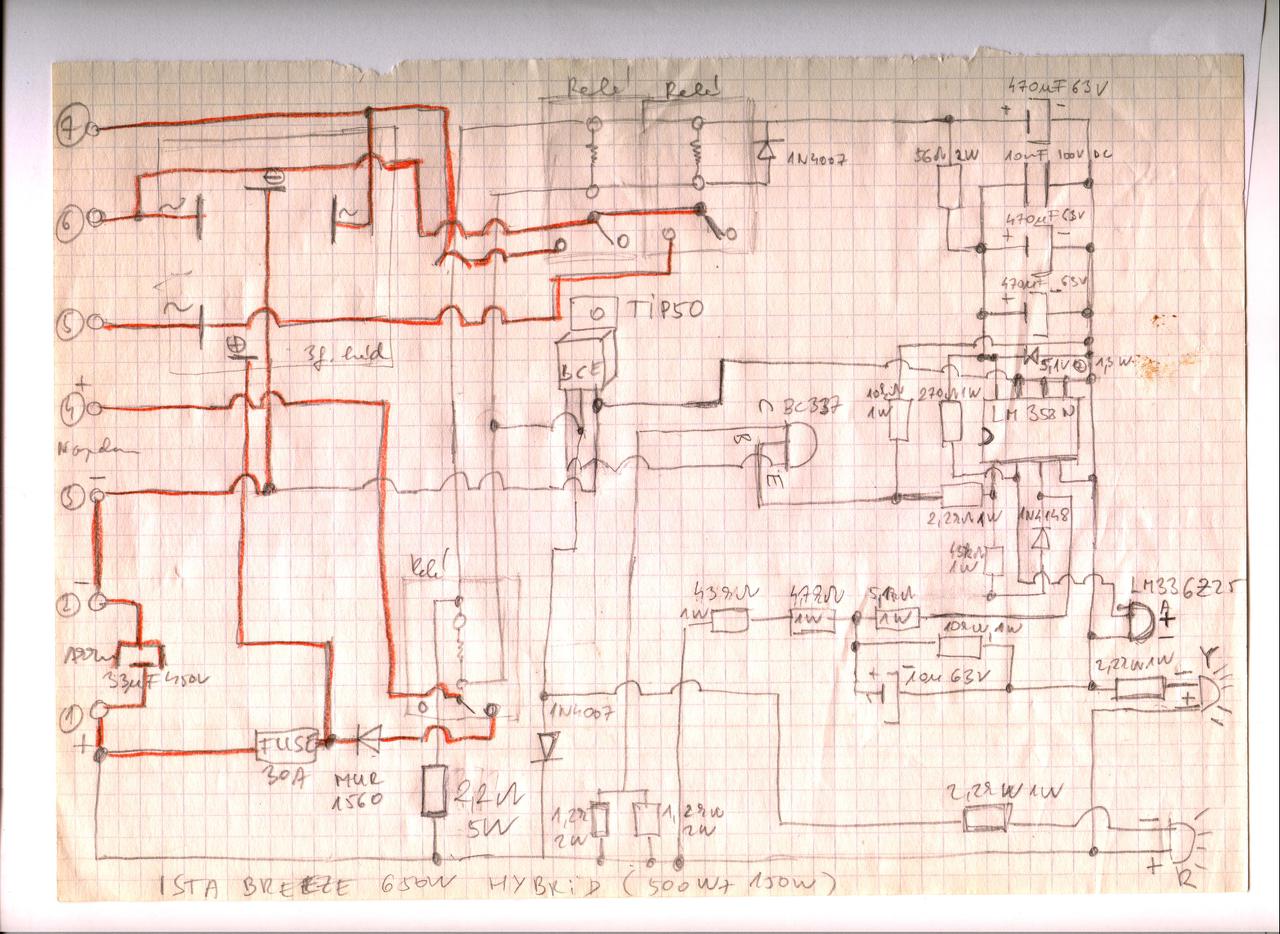 Relé Relé
470µF 63V
7
+ -
1N4007
56Ω 2W
10µF 100V DC
6
~ ⊖ ~
470µF 63V
+
470µF 63V
+ -
5
~
TIP50
⊕ 3f. híd
5,1V 1,3W
BCE
4 +
BC337
C
B
E
10kΩ
1W
270Ω 1W
LM358N
3 -
2,2kΩ 1W
1N4148
43kΩ
1W
Relé
2 -
43kΩ
1W
47kΩ
1W
5,1kΩ
1W
LM336Z25
A
+
-
10kΩ 1W
33µF 450V
2,2kW 1W
Y
-
+
10µ 63V
+ -
1
+
1N4007
FUSE
30A
MUR
1560
2,2Ω
5W
1,2k
2W
1,2kW
2W
2,2kW 1W
-
+
R
ISTA BREEZE 650W HYBRID (500W+150W)